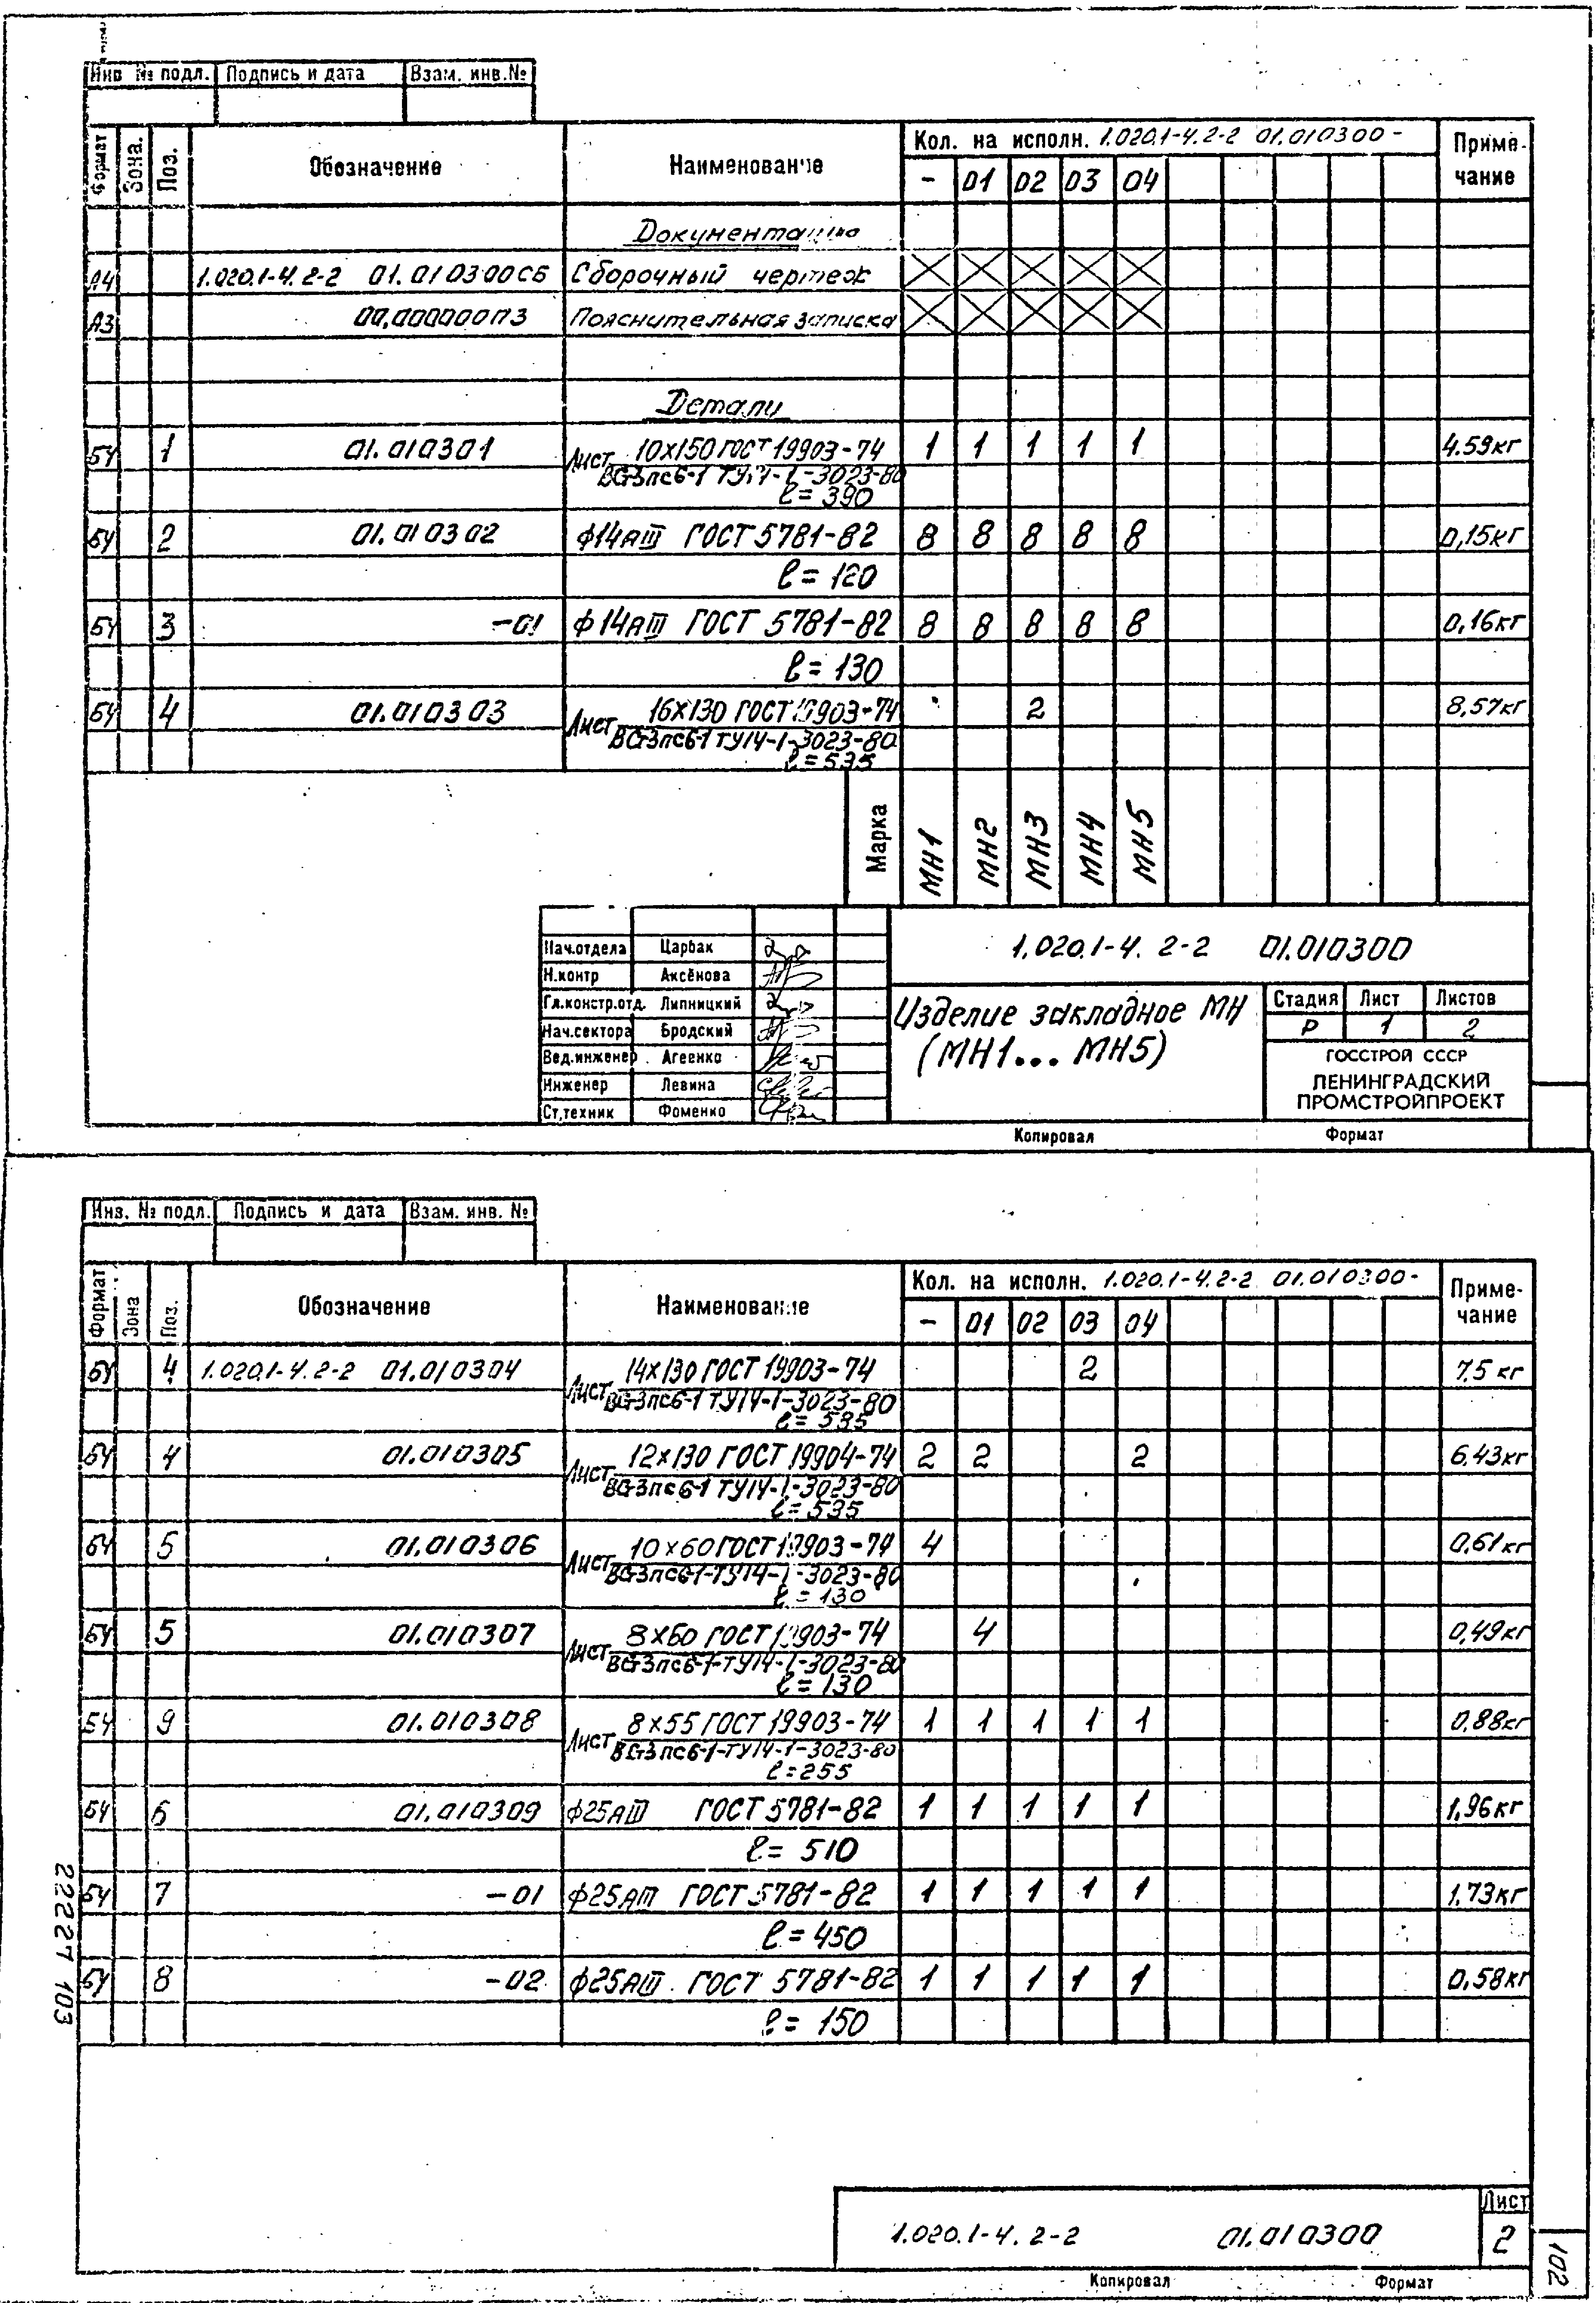 Инв № подл. Подпись и дата Взам. инв.№
Формат Зона. Поз. Обозначение Наименование Кол. на исполн. 1.020.1-4.2-2 01.010300- Приме-
чание
- 01 02 03 04
Документация
А4 1.020.1-4.2-2 01.010300СБ Сборочный чертеж
А3 00.000000ПЗ Пояснительная записка
Детали
БЧ 1 01.010301 Лист 10х150 ГОСТ 19903-74 1 1 1 1 1 4.59кг
ВСт3пс6-1 ТУ14-1-3023-80
ℓ=390
БЧ 2 01.010302 ф14АIII ГОСТ 5781-82 8 8 8 8 8 0,15кг
ℓ=120
БЧ 3 -01 ф14АIII ГОСТ 5781-82 8 8 8 8 8 0,16кг
ℓ=130
БЧ 4 01.010303 Лист 16х130 ГОСТ 19903-74 2 8,57кг
ВСт3пс6-1 ТУ14-1-3023-80
ℓ=535
Марка МН1 МН2 МН3 МН4 МН5
Нач.отдела Царбак
Н.контр Аксёнова
Гл.констр.отд. Липницкий
Нач.сектора Бродский
Вед.инженер Агеенко
Инженер Левина
Ст.техник Фоменко
1.020.1-4.2-2 01.010300
Изделие закладное МН
(МН1... МН5)
Стадия Лист Листов
Р 1 2
ГОССТРОЙ СССР
ЛЕНИНГРАДСКИЙ
ПРОМСТРОЙПРОЕКТ
Копировал Формат
Инв. № подл. Подпись и дата Взам. инв. №
Формат Зона Поз. Обозначение Наименование Кол. на исполн. 1.020.1-4.2-2 01.010300- Приме-
чание
- 01 02 03 04
БЧ 4 1.020.1-4.2-2 01.010304 Лист 14х130 ГОСТ 19903-74 2 7.5 кг
ВСт3пс6-1 ТУ14-1-3023-80
ℓ=535
БЧ 4 01.010305 Лист 12х130 ГОСТ 19904-74 2 2 2 6.43кг
ВСт3пс6-1 ТУ14-1-3023-80
ℓ=535
БЧ 5 01.010306 Лист 10х60 ГОСТ 19903-74 4 0,61кг
ВСт3пс6-1-ТУ14-1-3023-80
ℓ=130
БЧ 5 01.010307 Лист 8х60 ГОСТ 19903-74 4 0,49кг
ВСт3пс6-1-ТУ14-1-3023-80
ℓ=130
БЧ 9 01.010308 Лист 8х55 ГОСТ 19903-74 1 1 1 1 1 0,88кг
ВСт3пс6-1-ТУ14-1-3023-80
ℓ=255
БЧ 6 01.010309 ф25АIII ГОСТ 5781-82 1 1 1 1 1 1,96кг
ℓ=510
БЧ 7 -01 ф25АIII ГОСТ 5781-82 1 1 1 1 1 1.73кг
ℓ=450
БЧ 8 -02 ф25АIII ГОСТ 5781-82 1 1 1 1 1 0,58кг
ℓ=150
22221 103
1.020.1-4.2-2 01.010300
Лист
2
102
Копировал Формат